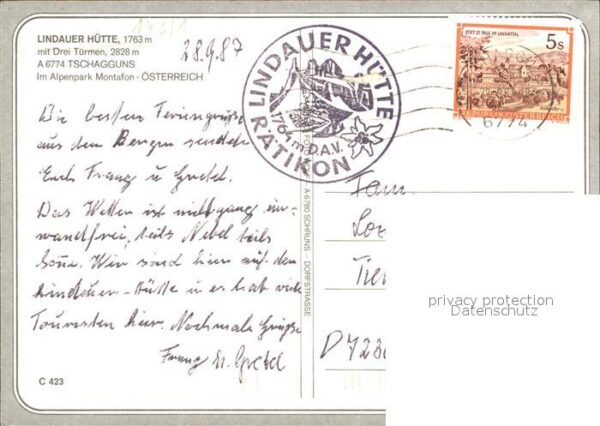 LINDAUER HÜTTE, 1763 m
mit Drei Türmen, 2828 m
A 6774 TSCHAGGUNS
Im Alpenpark Montafon - ÖSTERREICH
28.9.87
LINDAUER HÜTTE
1764 m D.A.V.
RÄTIKON
STIFT ST. PAUL IM LAVANTTAL
5s
REPUBLIK ÖSTERREICH
6774
Die besten Feriengrüße
aus den Bergen senden
Euch Franz u Gretel.
Das Wetter ist nicht ganz ein-
wandfrei, teils Nebel teils
Sonne. Wir sind hier auf der
Lindauer-Hütte u es hat viele
Touristen hier. Nochmals Grüße
Franz u. Gretel
A 6780 SCHRUNS - DORFSTRASSE
Fam.
D 723
privacy protection
Datenschutz
C 423